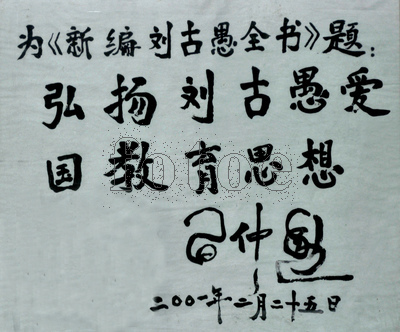 为《新编刘古愚全书》题：
弘扬刘古愚爱
国教育思想
fotoe
仲
二〇〇一年二月二十五日